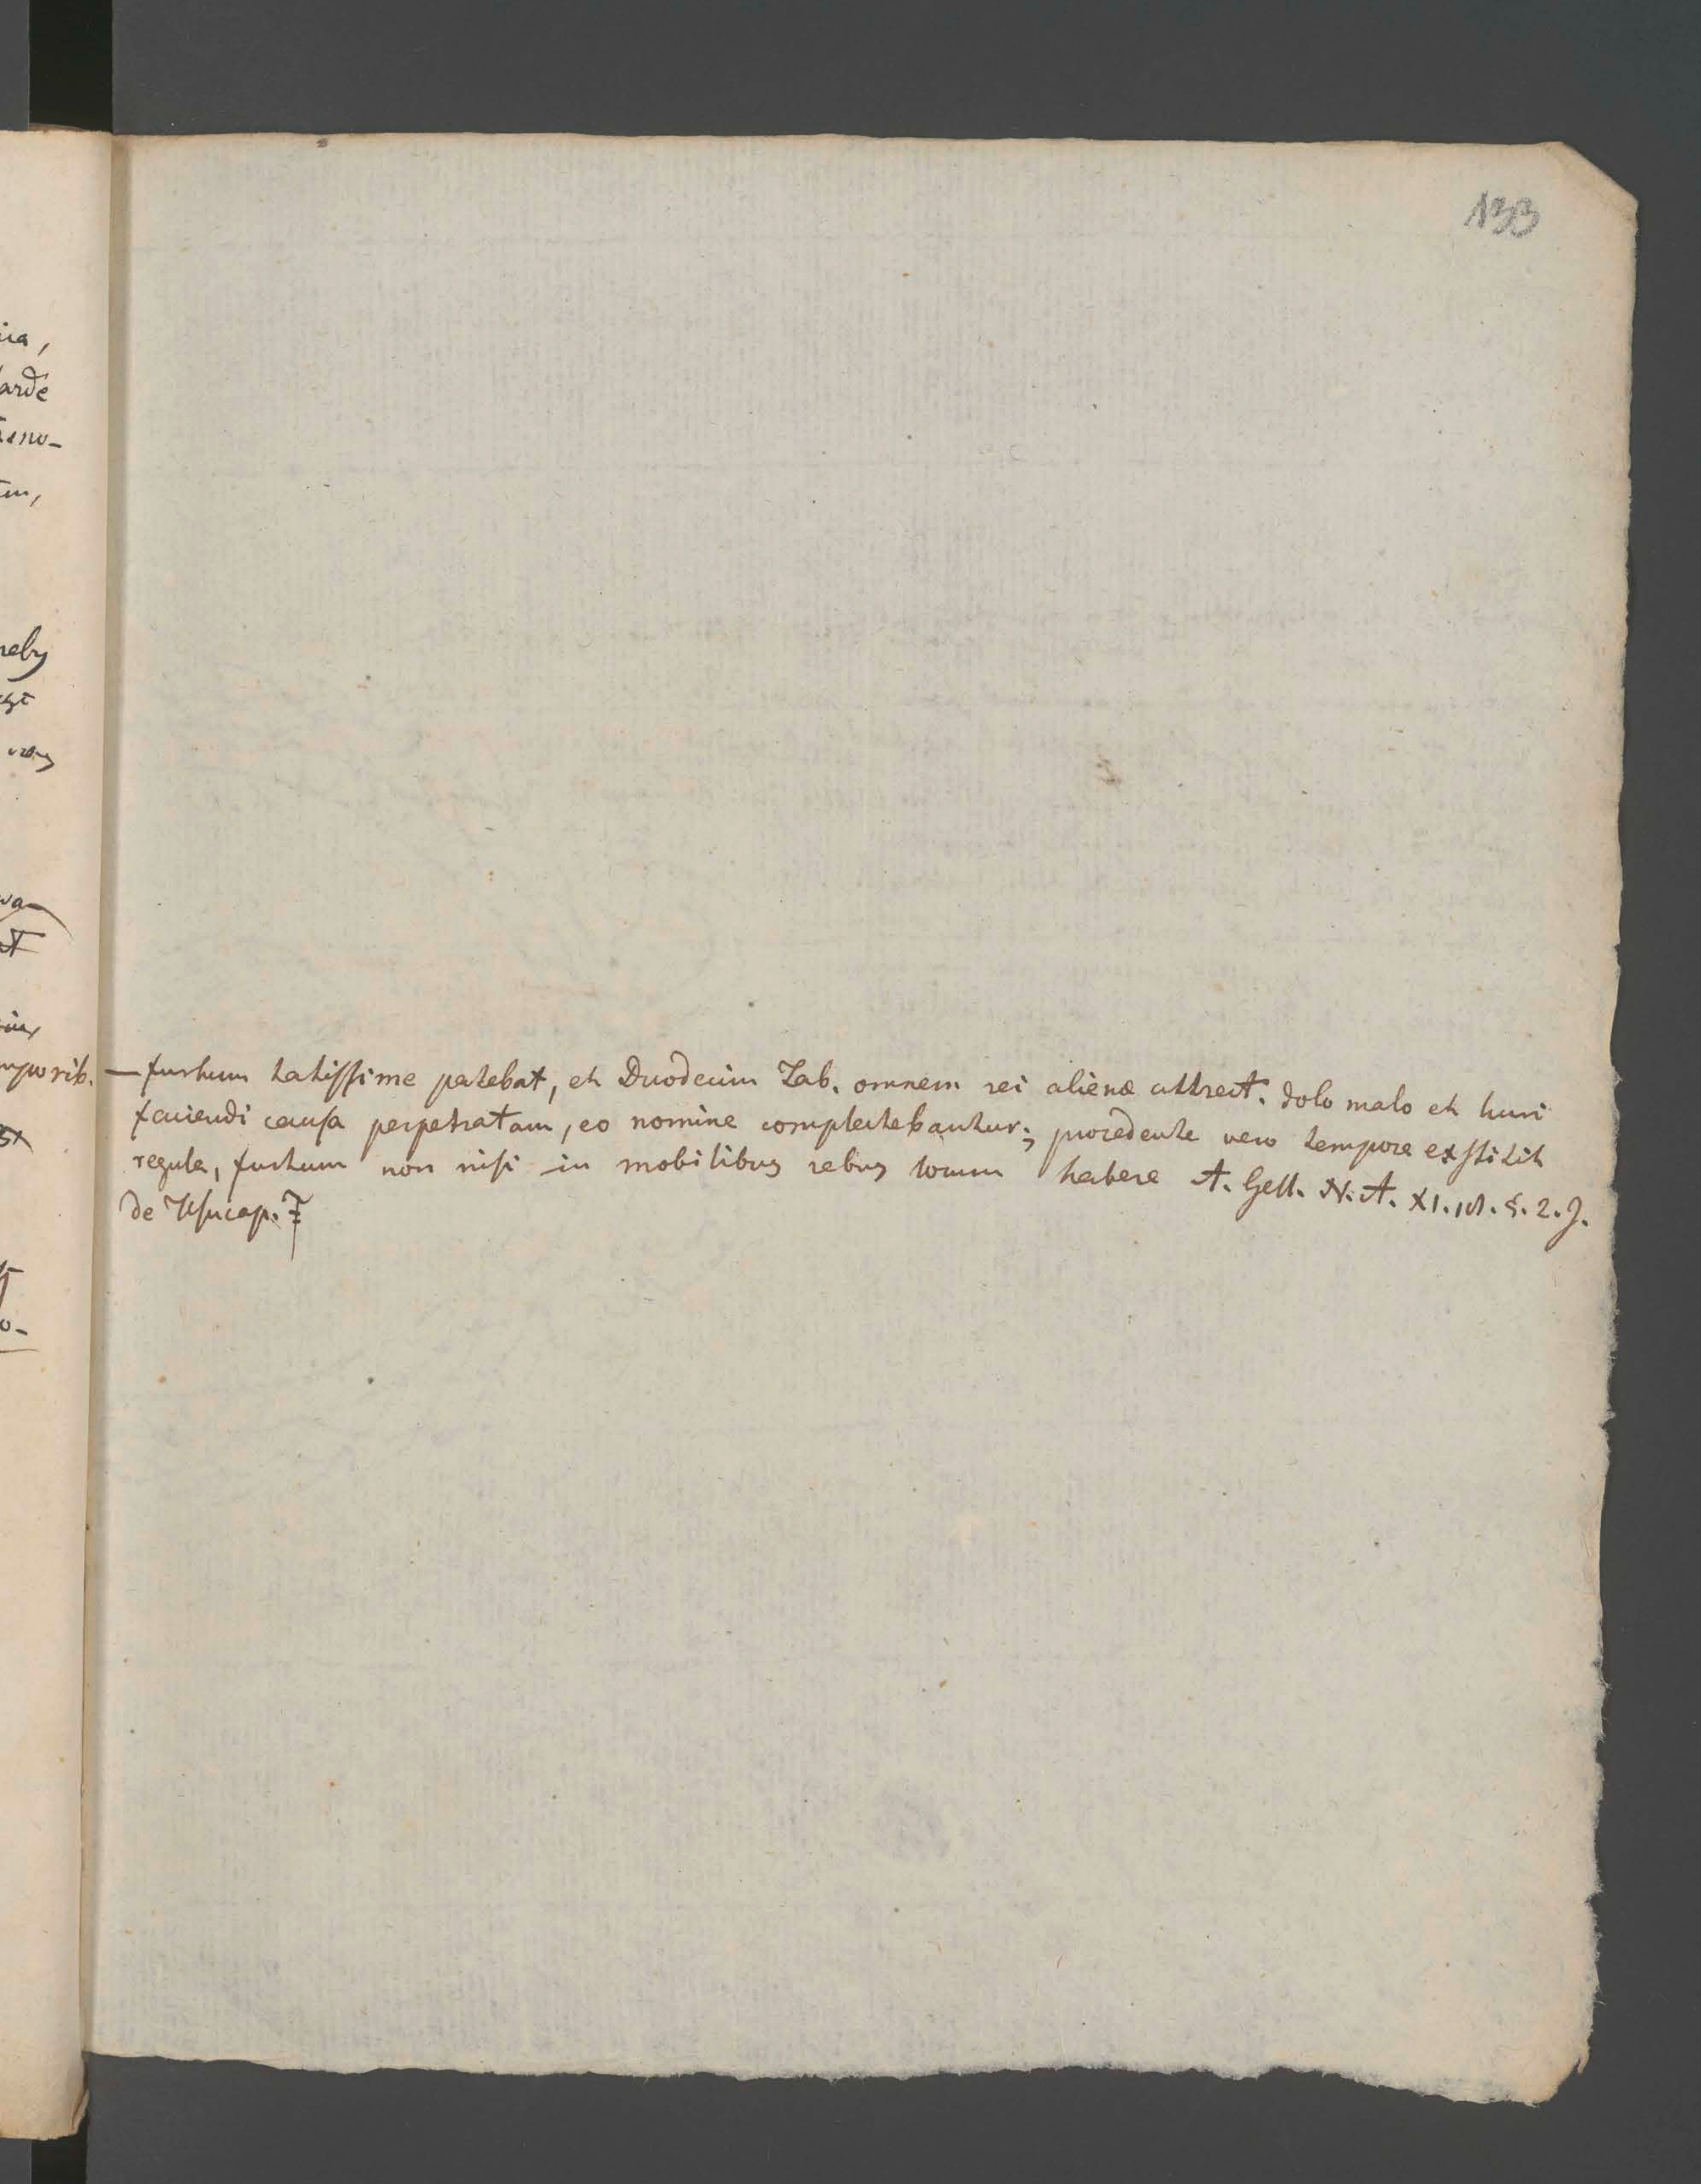 133
— furtum latissime patebat, et Duodecim Tab. omnem rei alienæ attrect. dolo malo et lucri
faciendi causa perpetratam, eo nomine complectebantur; procedente vero tempore exstitit
regula, furtum non nisi in mobilibus rebus locum habere A. Gell. N. A. XI. 18. §. 2. J.
de Usucap.